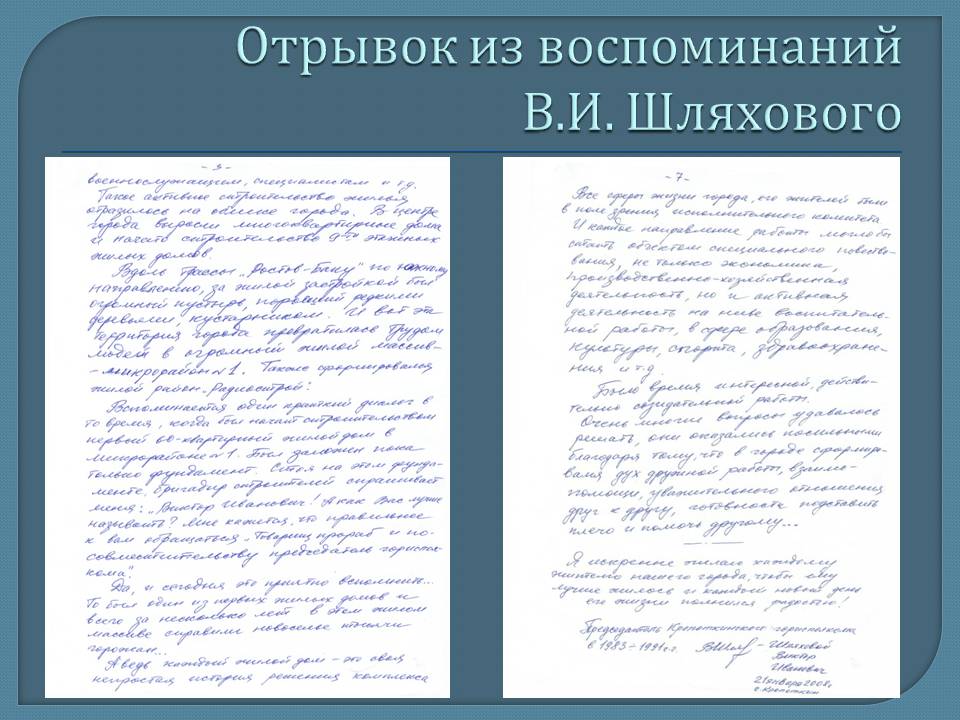 Отрывок из воспоминаний
В.И. Шляхового
- 5 -
военнослужащим, специалистам и т.д.
Такое активное строительство жилья
отразилось на облике города. В центре
города выросли многоквартирные дома
и начато строительство 9ти этажных
жилых домов.
Вдоль трассы „Ростов-Баку" по южному
направлению, за жилой застройкой был
огромный пустырь, поросший редкими
деревьями, кустарником. И вот эта
территория города превратилась трудом
людей в огромный жилой массив-
- микрорайон №1. Также сформировался
жилой район „Радиострой".
Вспоминается один краткий диалог в
то время, когда был начат строительством
первый 60-квартирный жилой дом в
микрорайоне №1. Был заложен пока
только фундамент. Стоя на этом фунда-
менте, бригадир строителей спрашивает
меня: „Виктор Иванович! А как Вас лучше
называть? Мне кажется, что правильнее
к вам обращаться „Товарищ прораб и по-
совместительству председатель гориспол-
кома".
Да, и сегодня это приятно вспомнить...
То был один из первых жилых домов и
всего за несколько лет в этом жилом
массиве справили новоселье тысячи
горожан...
А ведь каждый жилой дом - это своя
непростая история решения комплекса
- 7 -
Все сферы жизни города, его жителей были
в поле зрения исполнительного комитета
И каждое направление работы могло бы
стать объектом специального повество-
вания, не только экономика,
производственно-хозяйственная
деятельность, но и активная
деятельность на ниве воспитатель-
ной работы, в сфере образования,
культуры, спорта, здравоохране-
ния и т.д.
Было время интересной, действи-
тельно созидательной работы.
Очень многие вопросы удавалось
решать, они оказались посильными
благодаря тому, что в городе сформиро-
вался дух дружной работы, взаимо-
помощи, уважительного отношения
друг к другу, готовность подставить
плечо и помочь другому...
Я искренне желаю каждому
жителю нашего города, чтобы ему
лучше жилось и каждый новый день
его жизни полнился радостью!
Председатель Кропоткинского горисполкома
в 1983-1991 г.г. - Шляховой
Виктор
Иванович
21 января 2008г
г. Кропоткин